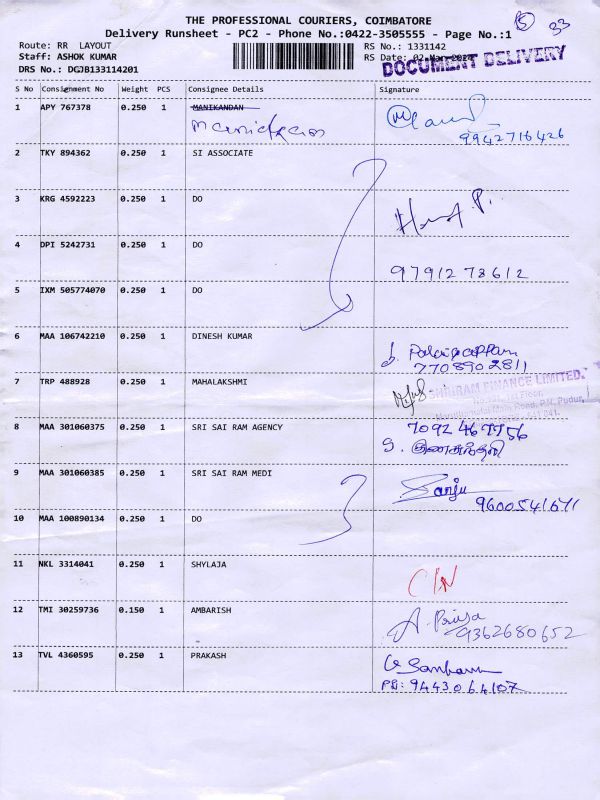 THE PROFESSIONAL COURIERS, COIMBATORE
Delivery Runsheet - PC2 - Phone No.:0422-3505555 - Page No.:1
5 33
Route: RR LAYOUT RS No.: 1331142
Staff: ASHOK KUMAR RS Date: 02-Mar-2024
DRS No.: DGJB133114201
DOCUMENT DELIVERY
S No Consignment No Weight PCS Consignee Details Signature
1 APY 767378 0.250 1 MANIKANDAN
9942716426
2 TKY 894362 0.250 1 SI ASSOCIATE
3 KRG 4592223 0.250 1 DO
4 DPI 5242731 0.250 1 DO
9791278612
5 IXM 505774070 0.250 1 DO
6 MAA 106742210 0.250 1 DINESH KUMAR
7708902811
7 TRP 488928 0.250 1 MAHALAKSHMI
SHRIRAM FINANCE LIMITED.
8 MAA 301060375 0.250 1 SRI SAI RAM AGENCY 7092467756
9 MAA 301060385 0.250 1 SRI SAI RAM MEDI Sanju
9600541671
10 MAA 100890134 0.250 1 DO
11 NKL 3314041 0.250 1 SHYLAJA
C/N
12 TMI 30259736 0.150 1 AMBARISH A. Priya
9362680652
13 TVL 4360595 0.250 1 PRAKASH
PB: 9443064107